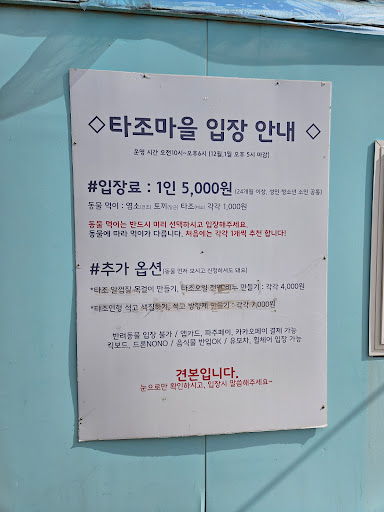 ◇타조마을 입장 안내◇
운영 시간 오전10시~오후6시 (12월,1월 오후 5시 마감)
#입장료 : 1인 5,000원 (24개월 이상, 성인 청소년 소인 공통)
동물 먹이 : 염소 토끼 타조 각각 1,000원
동물 먹이는 반드시 미리 선택하시고 입장해주세요.
동물에 따라 먹이가 다릅니다. 처음에는 각각 1개씩 추천 합니다!
#추가 옵션 (동물 먼저 보시고 신청하셔도 돼요)
*타조 알껍질 목걸이 만들기, 타조오일 천연비누 만들기 : 각각 4,000원
*타조인형 석고 색칠하기, 석고 방향제 만들기 : 각각 7,000원
반려동물 입장 불가 / 앱카드, 파주페이, 카카오페이 결제 가능
킥보드, 드론NONO / 음식물 반입OK / 유모차, 휠체어 입장 가능
견본입니다.
눈으로만 확인하시고, 입장시 말씀해주세요~